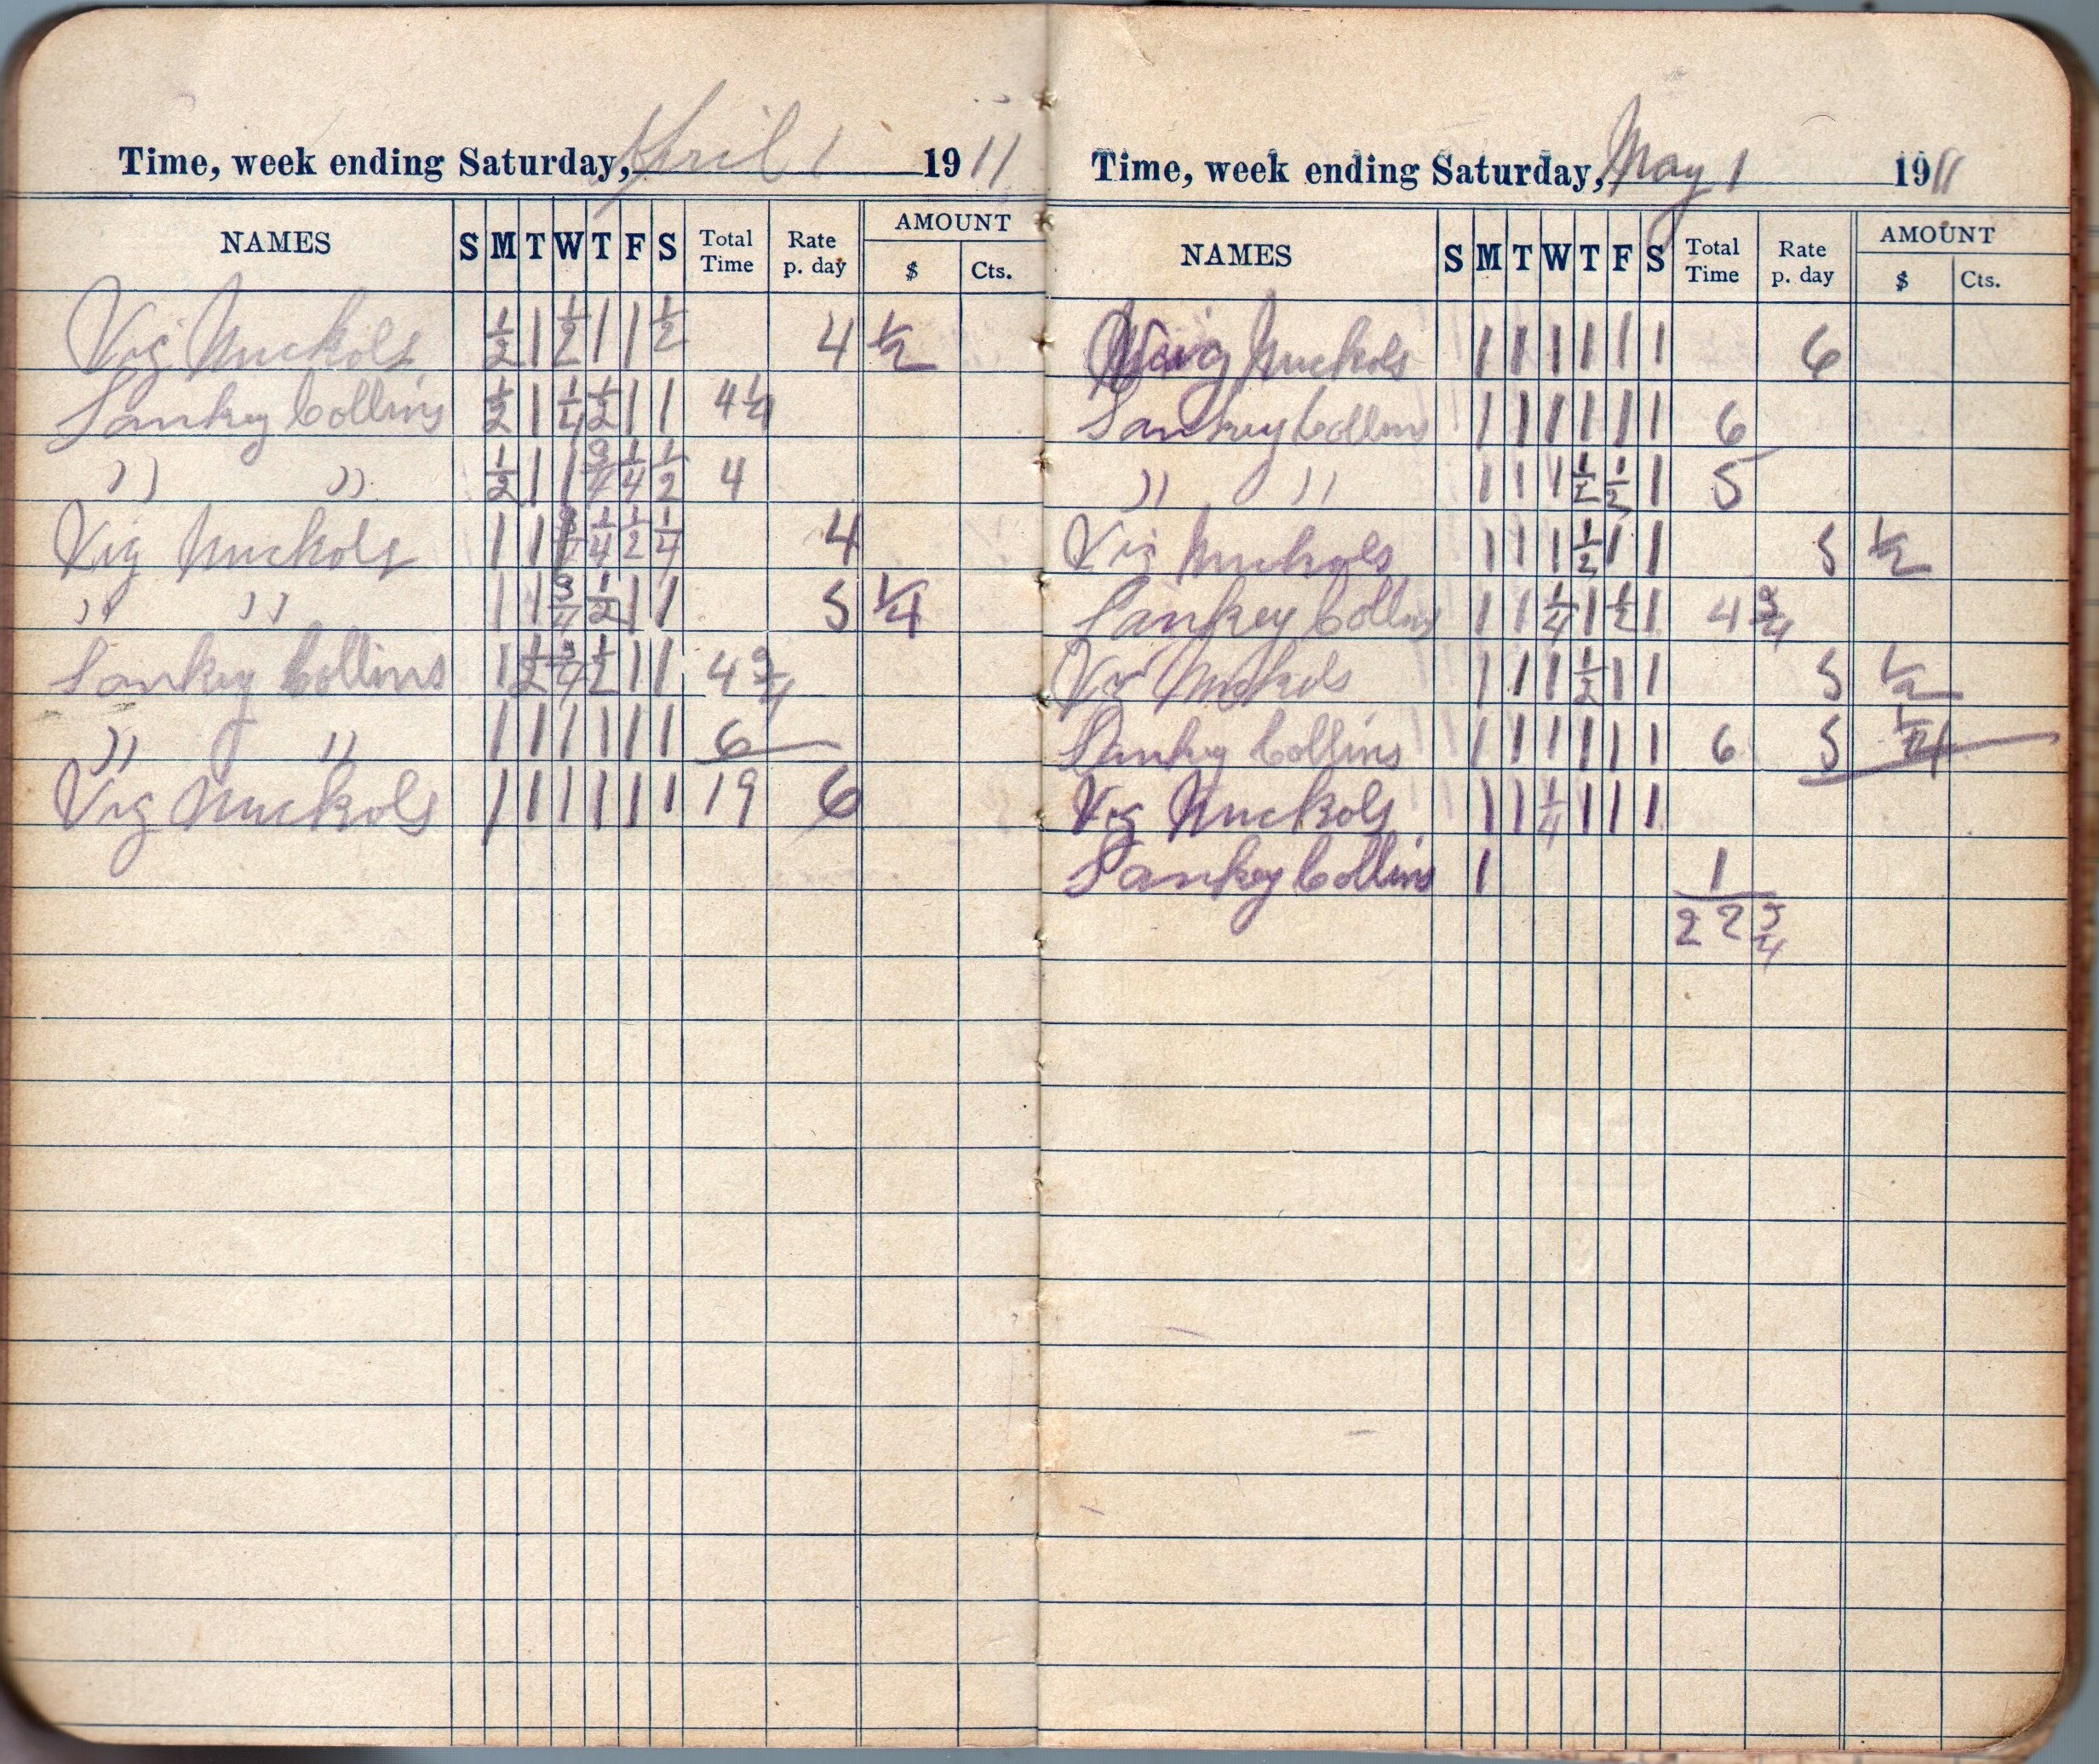 Time, week ending Saturday, April 1 1911
NAMES S M T W T F S Total Time Rate p. day AMOUNT $ Cts.
Vig Nuckols 1/2 1 1/2 1 1 1/2 4 1/2
Sankey Collins 1/2 1 1/4 1/2 1 1 4 1/4
" " 1/2 1 1 3/4 1/4 1/2 4
Vig Nuckols 1 1 3/4 1/4 1/2 1/4 4
" " 1 1 3/4 1/2 1 1 5 1/4
Sankey Collins 1 1/2 3/4 1/2 1 1 4 3/4
" " 1 1 1 1 1 1 6
Vig Nuckols 1 1 1 1 1 1 19 6
Time, week ending Saturday, May 1 1911
NAMES S M T W T F S Total Time Rate p. day AMOUNT $ Cts.
Nuckols 1 1 1 1 1 1 6
Sankey Collins 1 1 1 1 1 1 6
" " 1 1 1 1/2 1/2 1 5
Vig Nuckols 1 1 1 1/2 1 1 5 1/2
Sankey Collins 1 1 1/4 1 1/2 1 4 3/4
Vig Nuckols 1 1 1 1/2 1 1 5 1/2
Sankey Collins 1 1 1 1 1 1 6 5 1/4
Vig Nuckols 1 1 1/4 1 1 1
Sankey Collins 1 1
22 3/4